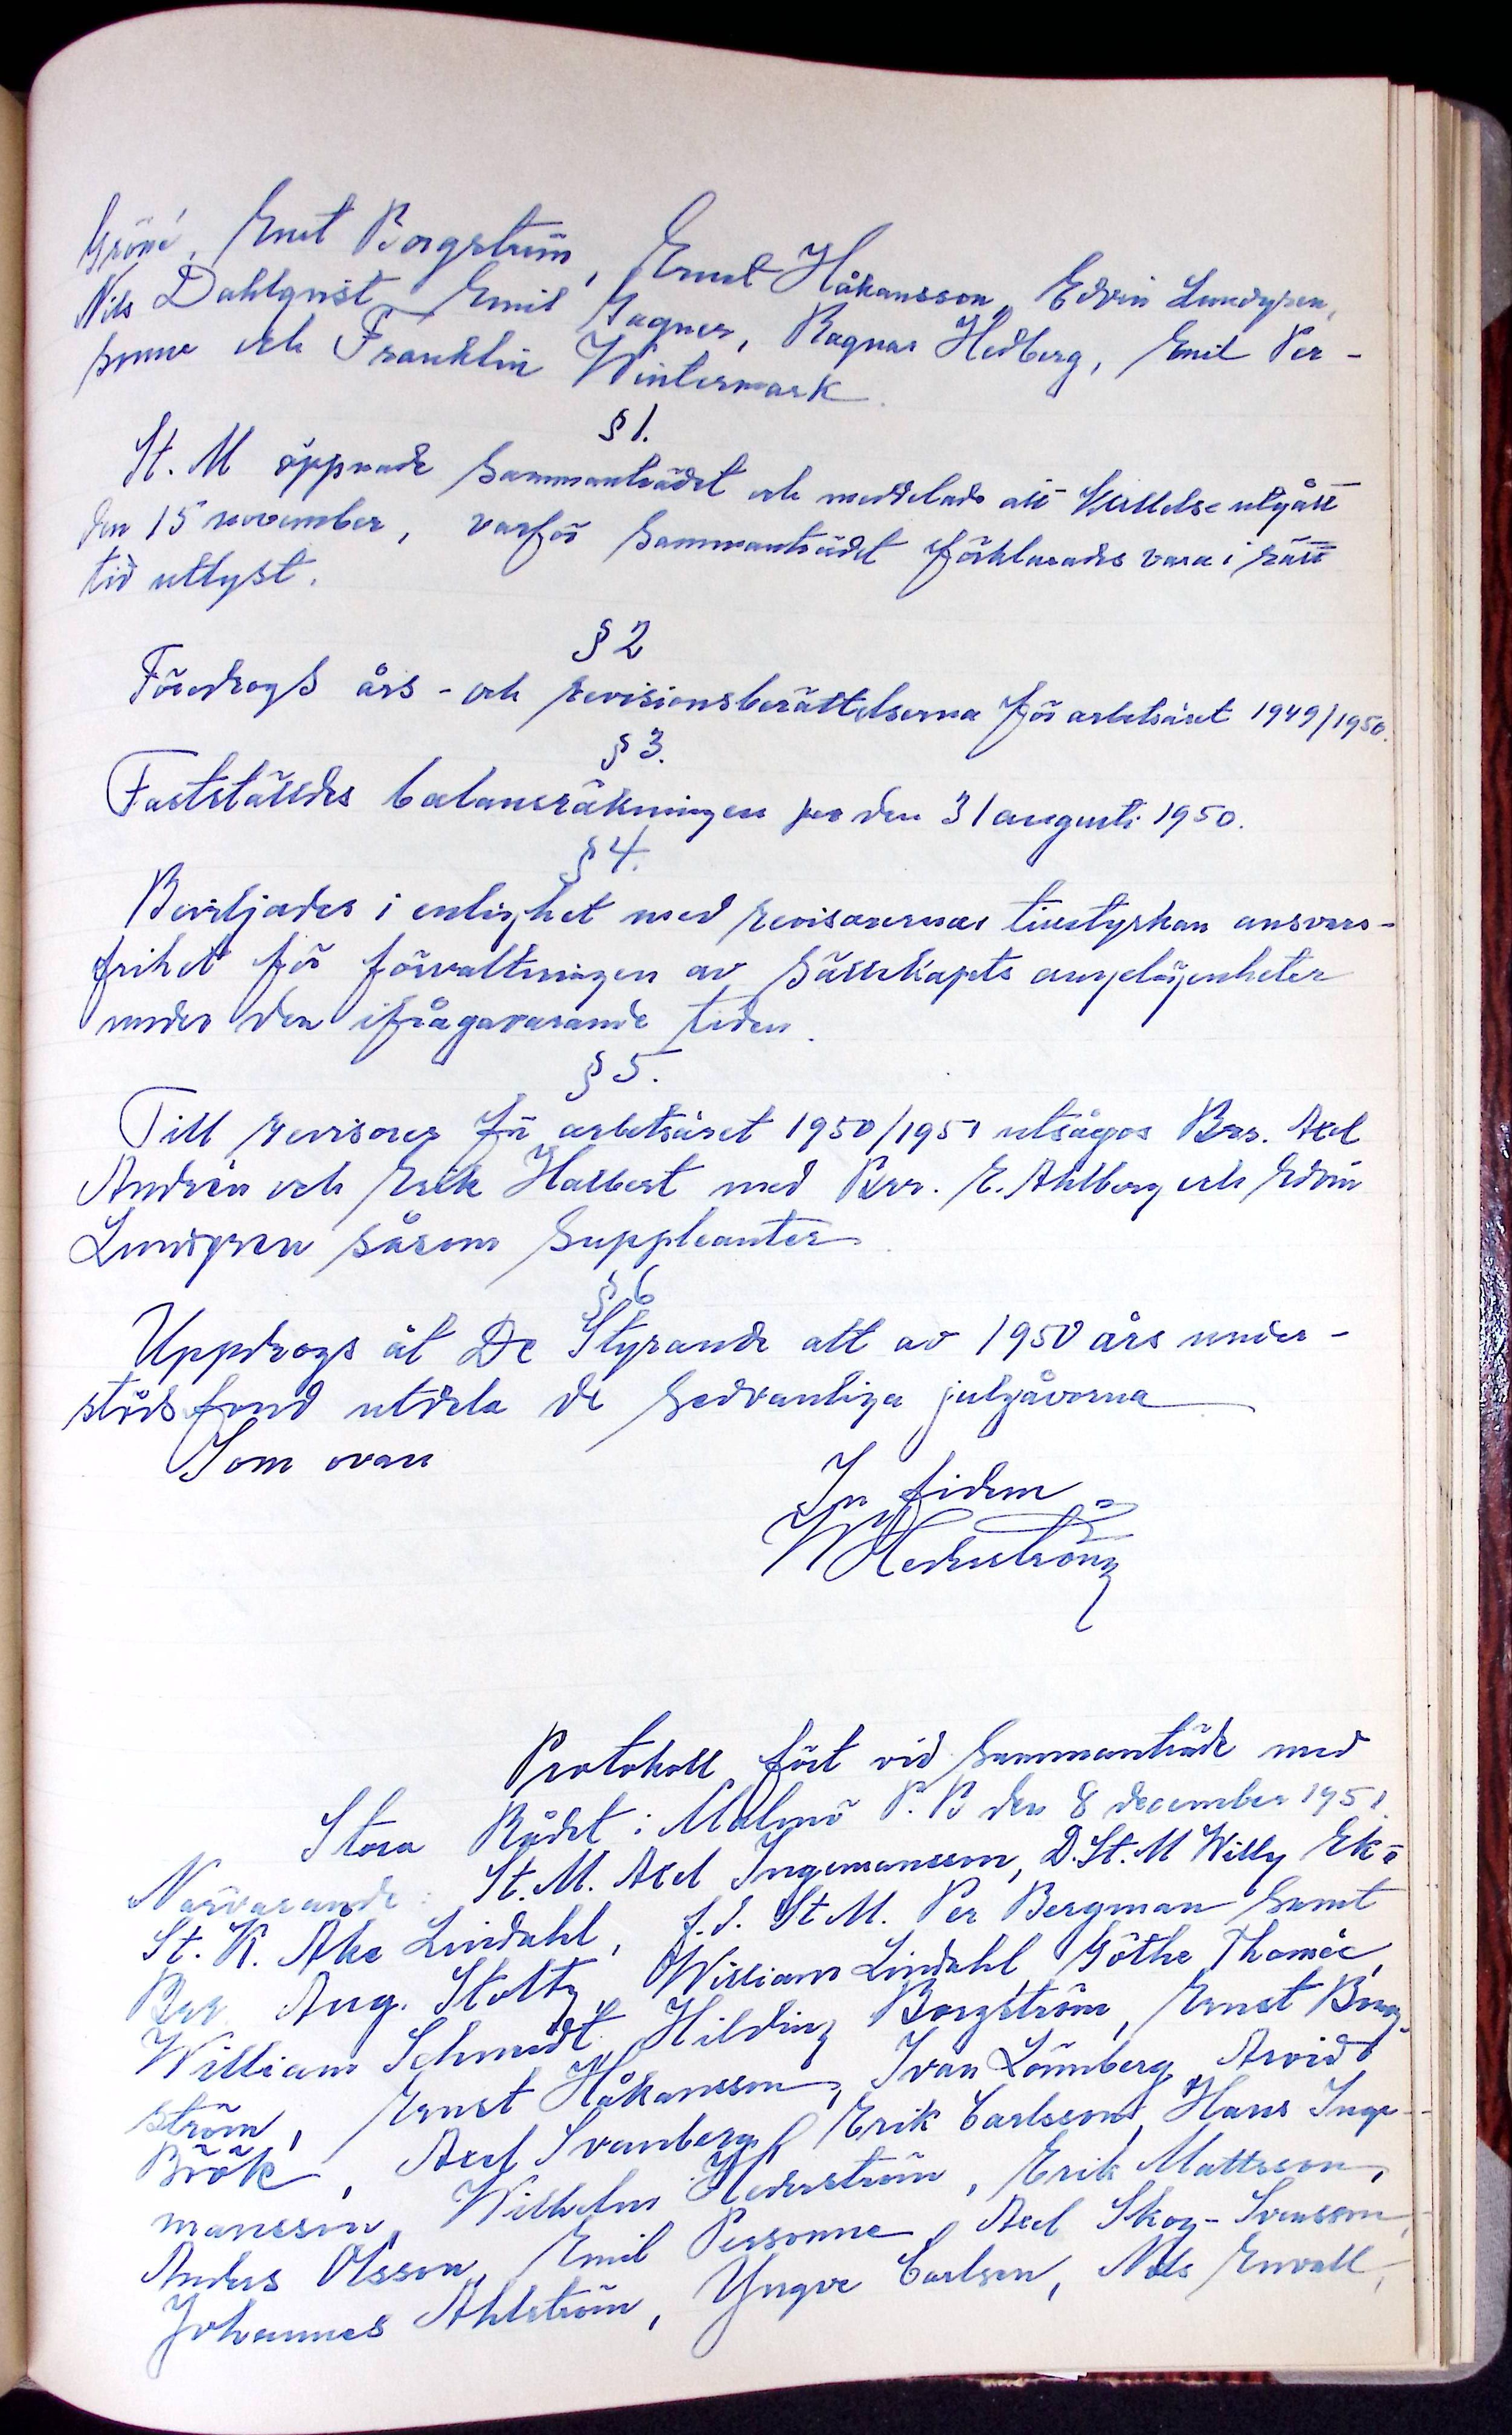 Gröné, Ernst Borgström, Ernst Håkansson, Edvin Lundgren,
Nils Dahlqvist, Emil Gagner, Ragnar Hedberg, Emil Per-
sonne och Franklin Wintermark.
§ 1.
St. M öppnade sammanträdet och meddelade att kallelse utgått
den 15 november, varför sammanträdet förklarades vara i rätt
tid utlyst.
§ 2
Föredrogs års- och revisionsberättelserna för arbetsåret 1949/1950.
§ 3.
Fastställdes balansräkningen per den 31 augusti 1950.
§ 4.
Beviljades i enlighet med revisorernas tillstyrkan ansvars-
frihet för förvaltningen av Sällskapets angelägenheter
under den ifrågavarande tiden.
§ 5.
Till revisorer för arbetsåret 1950/1951 utsågos Brr. Axel
Andrén och Erik Halbert med Brr. E. Ahlberg och Edvin
Lundgren såsom suppleanter.
§ 6
Uppdrogs åt De Styrande att av 1950 års under-
stödsfond utdela de sedvanliga julgåvorna
Som ovan
In fidem
W Hederström
Protokoll fört vid sammanträde med
Stora Rådet i Malmö P. B den 8 december 1951.
Närvarande: St. M. Axel Ingemansson, D. St. M Willy Ek,
St. K. Åke Lindahl, f. d. St M. Per Bergman samt
Brr. Aug. Stoltz, William Lindahl Göthe Thomée,
William Schmidt, Hilding Borgström, Ernst Borg-
ström, Ernst Håkansson, Ivan Lönnberg, Arvid
Böök, Axel Svanberg, Erik Carlsson, Hans Inge-
mansson, Wilhelm Hederström, Erik Mattsson,
Anders Olsson, Emil Personne, Axel Skog-Svensson,
Johannes Ahlström, Yngve Carlson, Nils Envall,